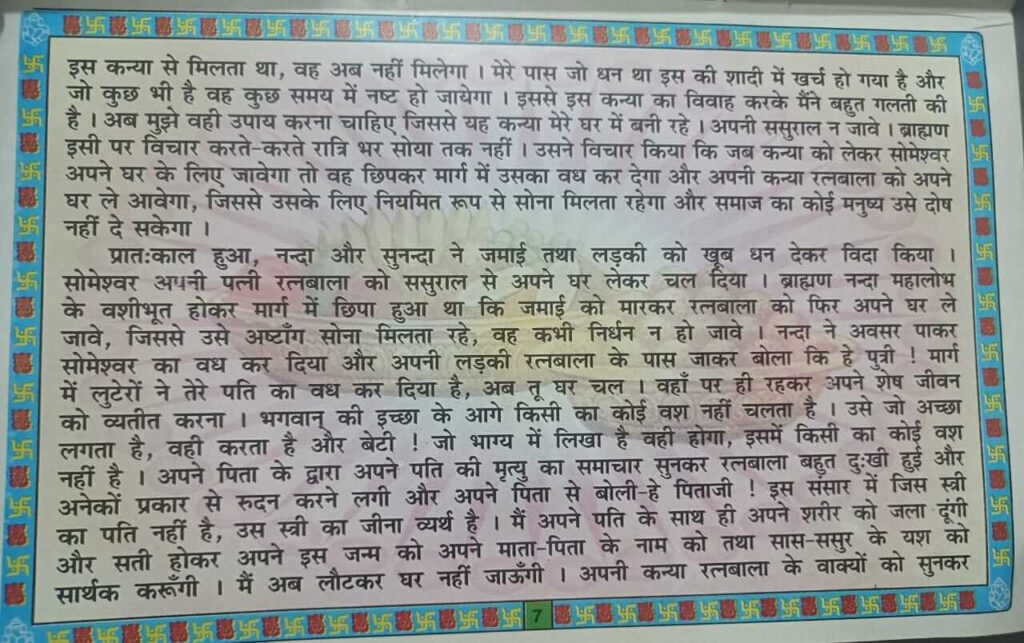 इस कन्या से मिलता था, वह अब नहीं मिलेगा । मेरे पास जो धन था इस की शादी में खर्च हो गया है और
जो कुछ भी है वह कुछ समय में नष्ट हो जायेगा । इससे इस कन्या का विवाह करके मैंने बहुत गलती की
है । अब मुझे वही उपाय करना चाहिए जिससे यह कन्या मेरे घर में बनी रहे । अपनी ससुराल न जावे । ब्राह्मण
इसी पर विचार करते-करते रात्रि भर सोया तक नहीं । उसने विचार किया कि जब कन्या को लेकर सोमेश्वर
अपने घर के लिए जावेगा तो वह छिपकर मार्ग में उसका वध कर देगा और अपनी कन्या रत्नबाला को अपने
घर ले आवेगा, जिससे उसके लिए नियमित रूप से सोना मिलता रहेगा और समाज का कोई मनुष्य उसे दोष
नहीं दे सकेगा ।
प्रातःकाल हुआ, नन्दा और सुनन्दा ने जमाई तथा लड़की को खूब धन देकर विदा किया ।
सोमेश्वर अपनी पत्नी रत्नबाला को ससुराल से अपने घर लेकर चल दिया । ब्राह्मण नन्दा महालोभ
के वशीभूत होकर मार्ग में छिपा हुआ था कि जमाई को मारकर रत्नबाला को फिर अपने घर ले
जावे, जिससे उसे अष्टाँग सोना मिलता रहे, वह कभी निर्धन न हो जावे । नन्दा ने अवसर पाकर
सोमेश्वर का वध कर दिया और अपनी लड़की रत्नबाला के पास जाकर बोला कि हे पुत्री ! मार्ग
में लुटेरों ने तेरे पति का वध कर दिया है, अब तू घर चल । वहाँ पर ही रहकर अपने शेष जीवन
को व्यतीत करना । भगवान् की इच्छा के आगे किसी का कोई वश नहीं चलता है । उसे जो अच्छा
लगता है, वही करता है और बेटी ! जो भाग्य में लिखा है वही होगा, इसमें किसी का कोई वश
नहीं है । अपने पिता के द्वारा अपने पति की मृत्यु का समाचार सुनकर रत्नबाला बहुत दुःखी हुई और
अनेकों प्रकार से रुदन करने लगी और अपने पिता से बोली-हे पिताजी ! इस संसार में जिस स्त्री
का पति नहीं है, उस स्त्री का जीना व्यर्थ है । मैं अपने पति के साथ ही अपने शरीर को जला दूंगी
और सती होकर अपने इस जन्म को अपने माता-पिता के नाम को तथा सास-ससुर के यश को
सार्थक करूँगी । मैं अब लौटकर घर नहीं जाऊँगी । अपनी कन्या रत्नबाला के वाक्यों को सुनकर
7